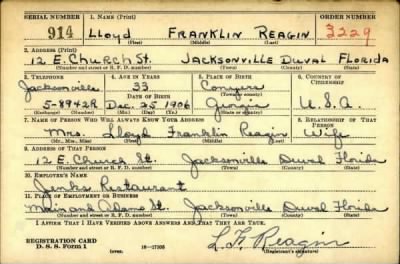 SERIAL NUMBER 1. NAME (Print) ORDER NUMBER
914 LLOYD FRANKLIN REAGIN 3229
(First) (Middle) (Last)
2. ADDRESS (Print)
12 E. CHURCH St. JACKSONVILLE DUVAL FLORIDA
(Number and street or R. F. D. number) (Town) (County) (State)
3. TELEPHONE 4. AGE IN YEARS 5. PLACE OF BIRTH 6. COUNTRY OF CITIZENSHIP
Jacksonville 33 Conyers
DATE OF BIRTH (Town or county)
5-8942R Dec. 25 1906 Georgia U.S.A.
(Exchange) (Number) (Mo.) (Day) (Yr.) (State or country)
7. NAME OF PERSON WHO WILL ALWAYS KNOW YOUR ADDRESS 8. RELATIONSHIP OF THAT PERSON
Mrs. Lloyd Franklin Reagin Wife
(Mr., Mrs., Miss) (First) (Middle) (Last)
9. ADDRESS OF THAT PERSON
12 E. Church St. Jacksonville Duval Florida
(Number and street or R. F. D. number) (Town) (County) (State)
10. EMPLOYER'S NAME
Jenks Restaurant
11. PLACE OF EMPLOYMENT OR BUSINESS
Main and Adams St. Jacksonville Duval Florida
(Number and street or R. F. D. number) (Town) (County) (State)
I AFFIRM THAT I HAVE VERIFIED ABOVE ANSWERS AND THAT THEY ARE TRUE.
REGISTRATION CARD L. F. Reagin
D. S. S. Form 1 (Registrant's signature)